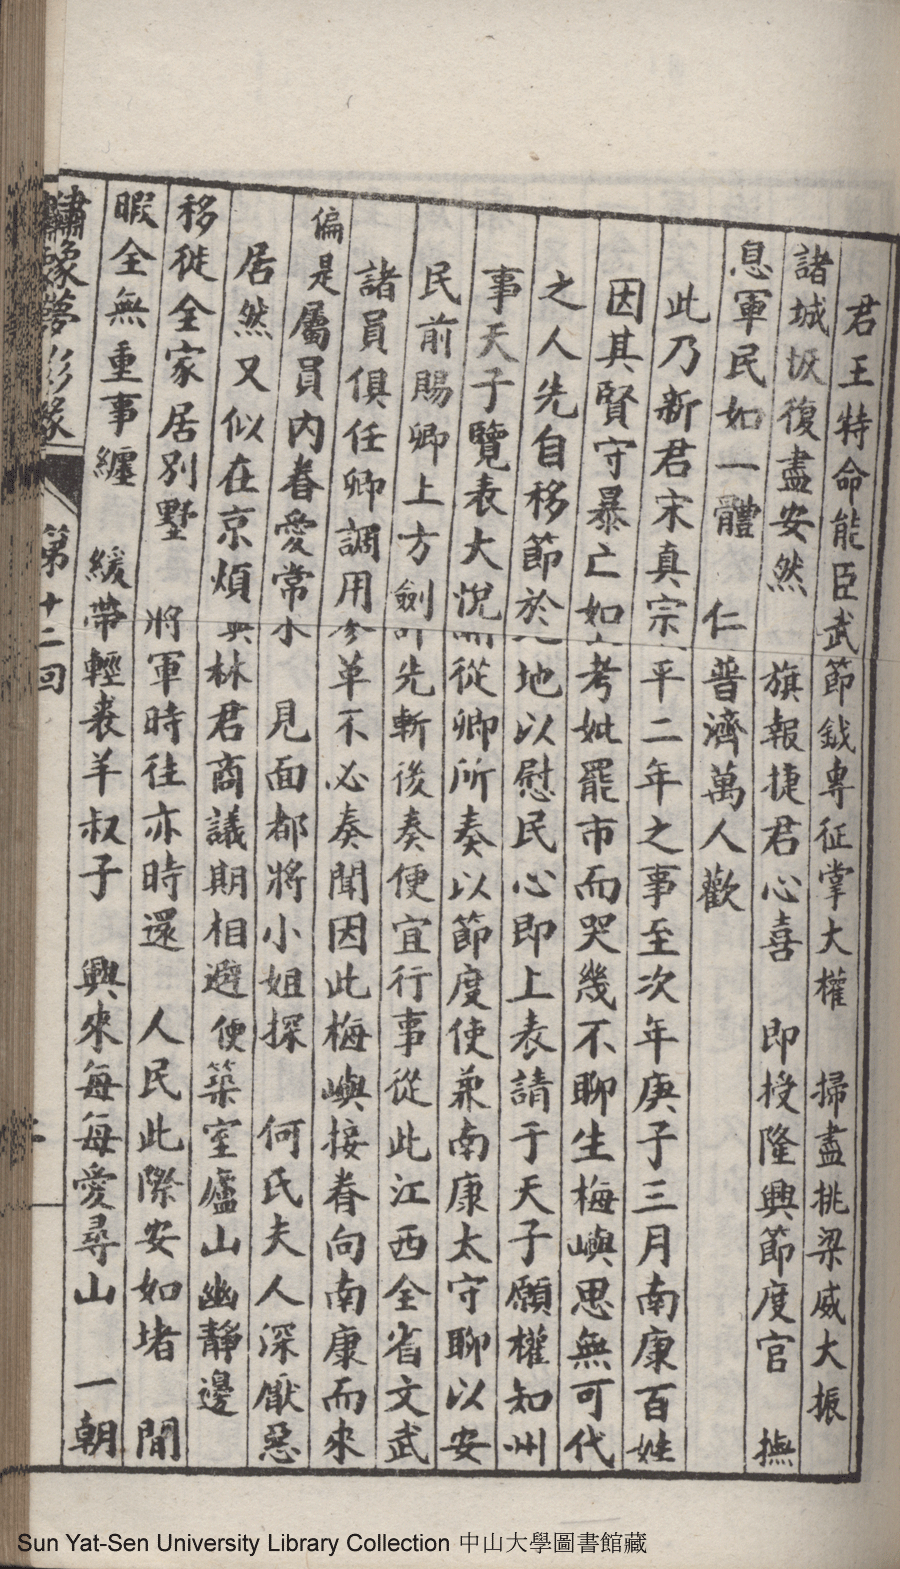 君王特命能臣武節鉞專征掌大權　掃盡挑梁威大振
諸城圾復盡安然　旗報捷君心喜　即授隆興節度官　撫
息軍民如一體　仁普濟萬人歡
此乃新君宋真宗平二年之事至次年庚子三月南康百姓
因其賢守暴亡如考妣罷市而哭幾不聊生梅嶼思無可代
之人先自移節於地以慰民心即上表請于天子願權知州
事天子覽表大悅從卿所奏以節度使兼南康太守聊以安
民前賜卿上方劍先斬後奏便宜行事從此江西全省文武
諸員俱任卿調用革不必奏聞因此梅嶼接眷向南康而來
偏是屬員內眷愛常　見面都將小姐探　何氏夫人深厭惡
居然又似在京煩　林君商議期相避　便築室廬山幽靜邊
移徙全家居別墅　將軍時往亦時還　人民此際安如堵　閒
暇全無重事纏　緩帶輕裘羊叔子　興來每每愛尋山　一朝
繡像夢影緣　第十二回
Sun Yat-Sen University Library Collection 中山大學圖書館藏